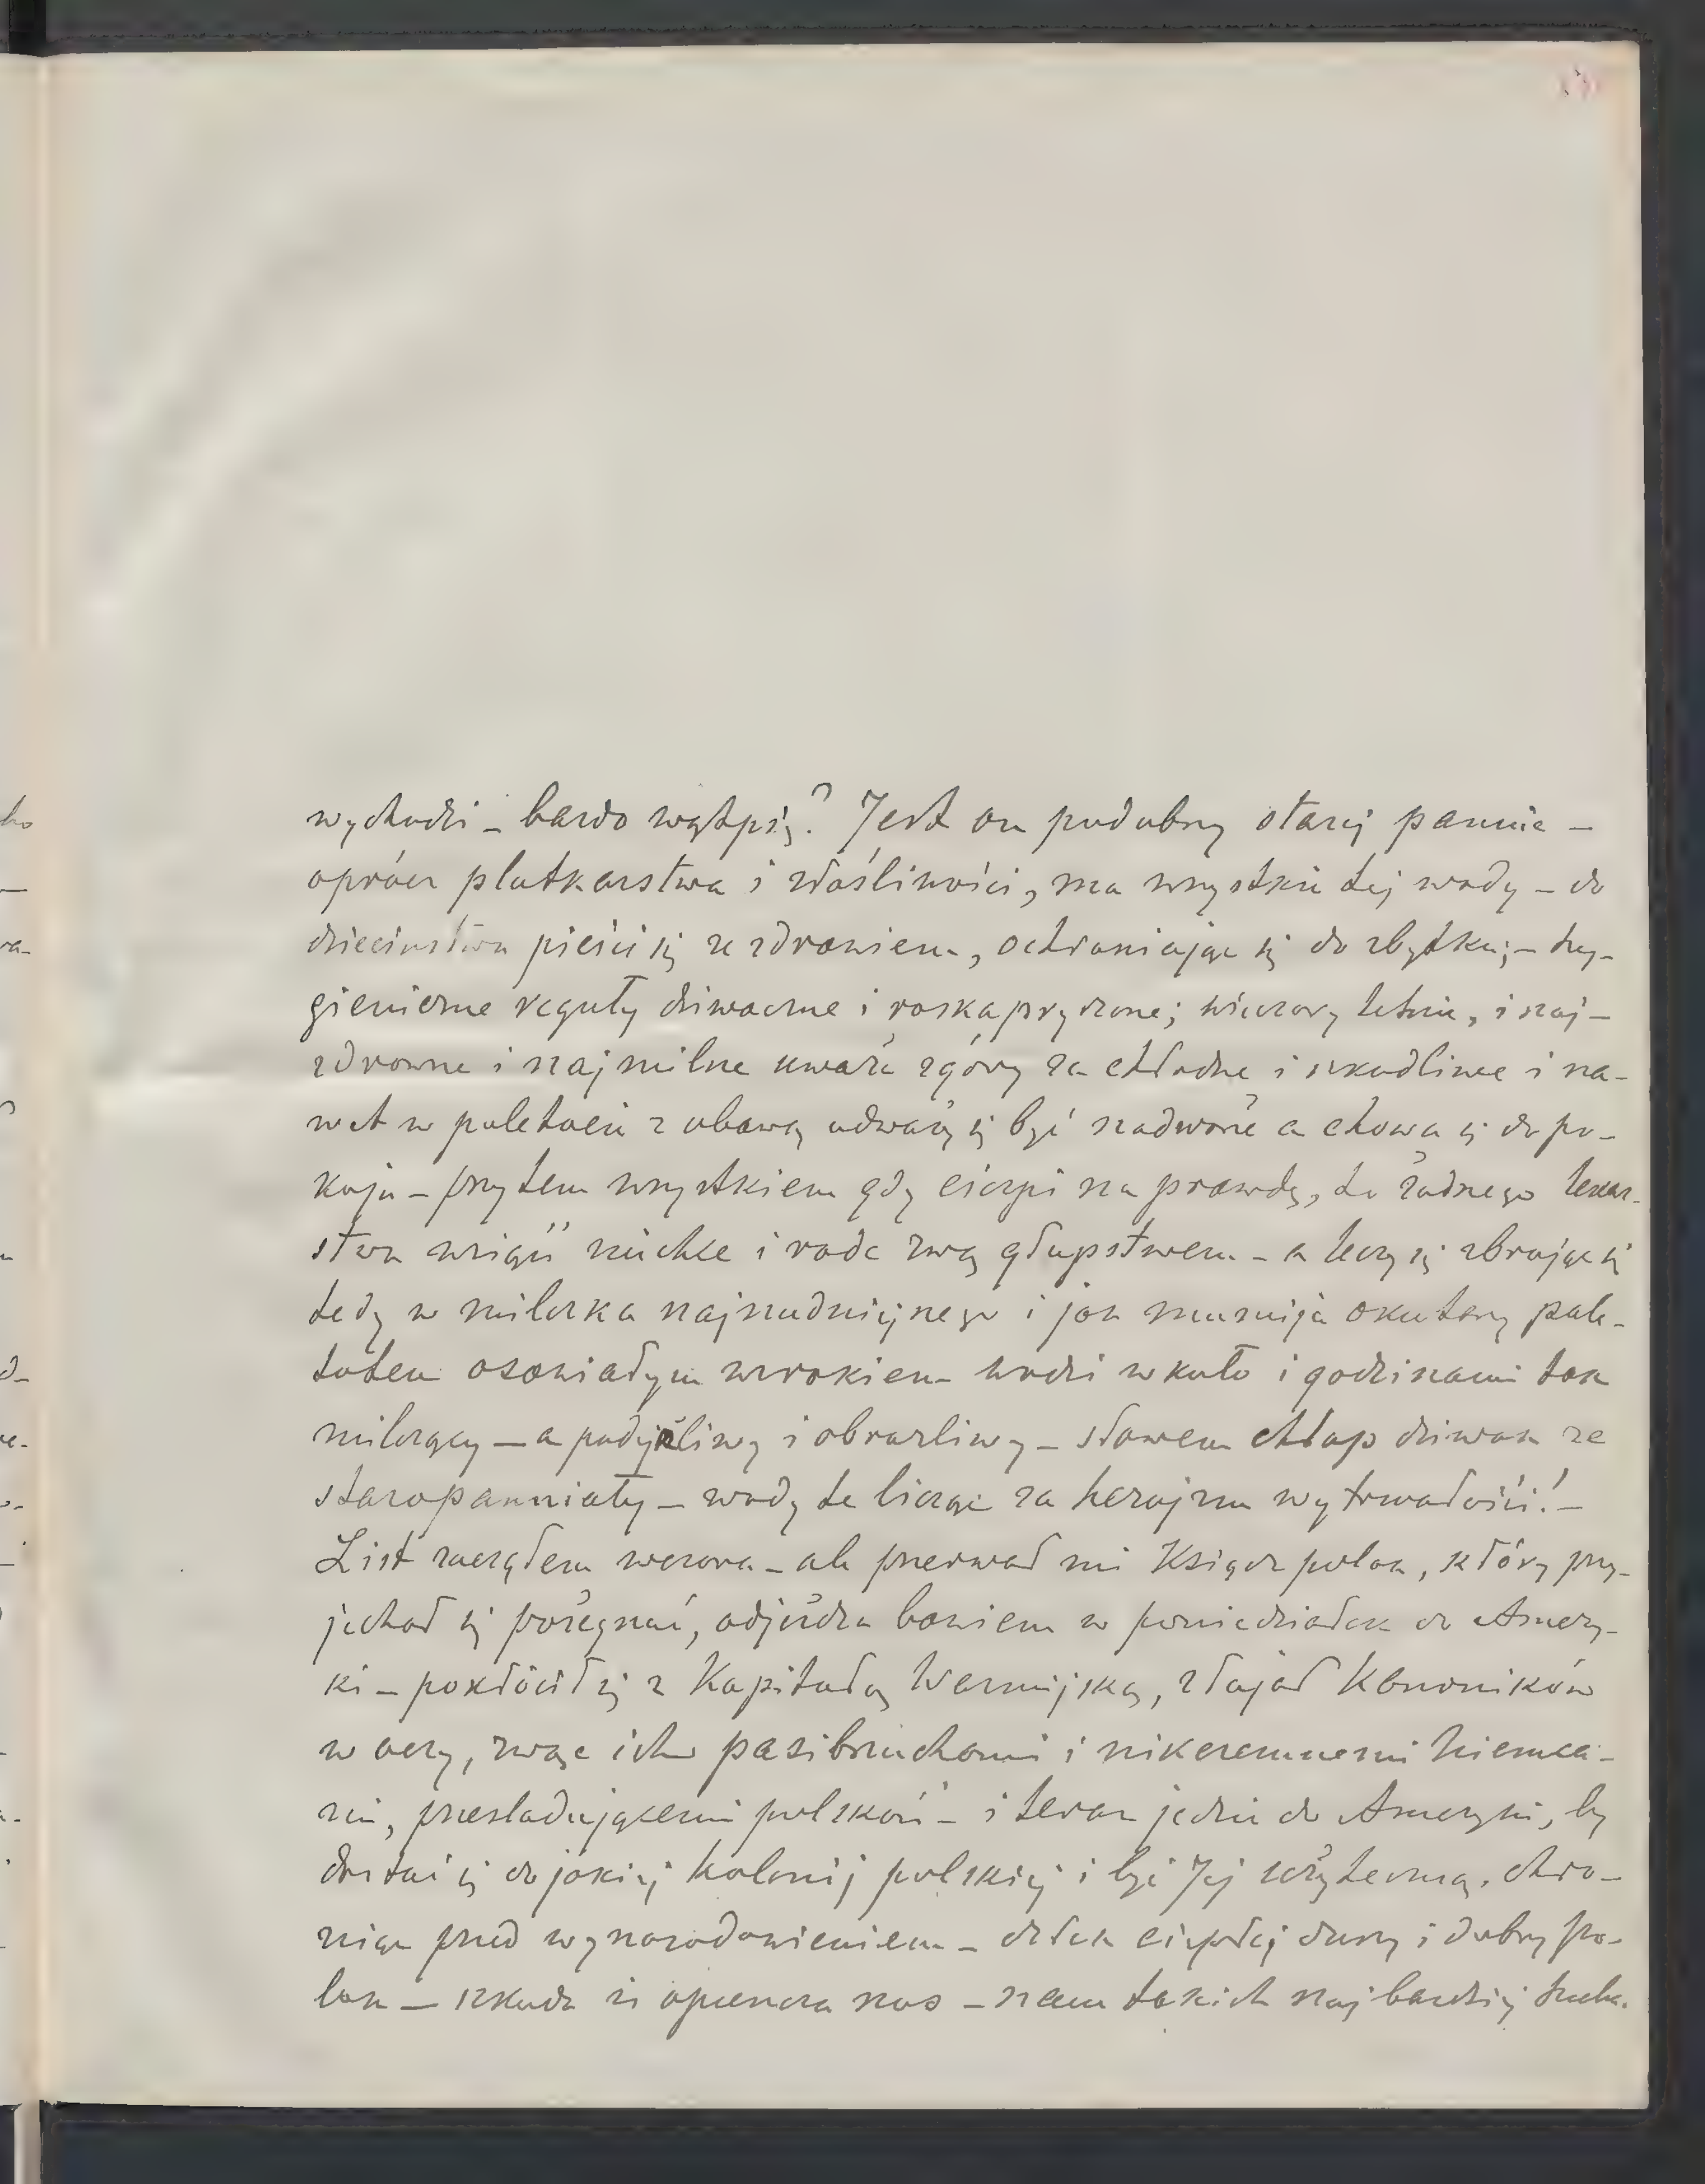 wychodzi – bardzo wątpię? Jest on podobny starej pannie –
oprócz plotkarstwa i złośliwości, ma wszystkie tej wady – do
dzieciństwa pieści się ze zdrowiem, ochraniając się do zbytku; – hy-
gieniczne reguły dziwaczne i roskapryszone; wieczory letnie, i naj-
zdrowsze i najmilsze uważa zgóry za chłodne i szkodliwe i na-
wet w paletocie z obawą odważy się być nadworze a chowa się do po-
koju – przytem wszystkiem gdy cierpi na prawdę, to żadnego lekar-
stwa wziąść niechce i radę zwą głupstwem – a leczy się zbrojąc się
tedy w milczka najnudniejszego i jak mumija okutany pale-
totem osowiałym wzrokiem wodzi wkoło i godzinami tak
milczący – a podejżliwy i obraźliwy – słowem chłop dziwak ze
staropanniały – wady te licząc za heroizm wytrwałości! –
List zacząłem wczora – ale przerwał mi Ksiądz polak, który przy-
jechał się pożegnać, odjeżdża bowiem w poniedziałek do Amery-
ki – pokłócił się z Kapitułą Warmijską, złajał Kanoników
w oczy, zwąc ich pasibrzuchami i nikczemnemi niemca-
mi, prześladującemi polskość – i teraz jedzie do Ameryki, by
dostać się do jakiej kolonij polskiej i być Jej użyteczną, chro-
niąc przed wynarodowieniem – człek ciepłej duszy i dobry po-
lak – szkoda iż opuszcza nas – nam takich najbardziej trzeba.